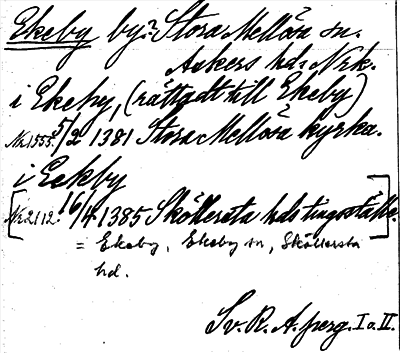 Ekeby by? Stora Mellösa sn.
Askers hd. Nrk.
i Ekeby, (rättadt till Ekeby)
Nr. 1555. 5/2 1381 Stora Mellösa kyrka.
i Eekby
[Nr. 2112. 16/4 1385 Sköllersta hds tingställe.]
= Ekeby, Ekeby sn, Sköllersta
hd.
Sv. R. A. perg. I o. II.